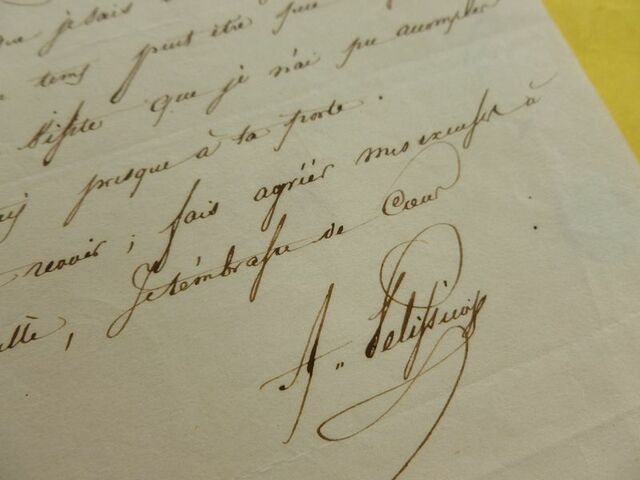 je sais
tems peut être que
visite que je n'ai pu acomplir
presque à la porte.
revoir; fais agréér mes excuses à
Je t'émbrasse de Cœur
A. Pelissier